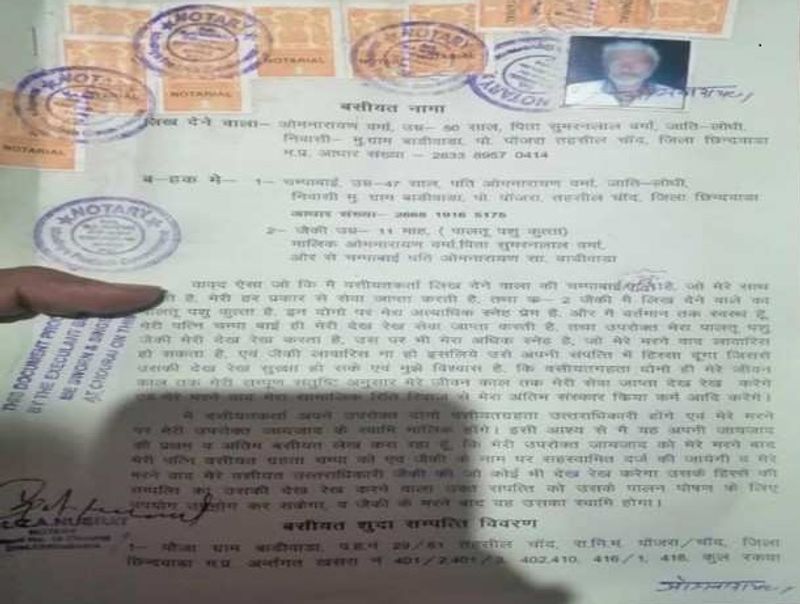 NOTARY
NOTARY
NOTARY
NOTARY
NOTARIAL
NOTARIAL
NOTARIAL
NOTARIAL
NOTARIAL
बसीयत नामा
लिख देने वाला– ओमनारायण वर्मा, उम्र– 50 साल, पिता सुमरनलाल वर्मा, जाति–लोधी,
निवासी– मु.ग्राम बाडीवाडा, पो. पौंजरा तहसील चाँद, जिला छिन्दवाडा
म.प्र. आधार संख्या – 2633 8957 0414
ब–हक मे– 1– चम्पाबाई, उम्र–47 साल, पति ओमनारायण वर्मा, जाति–लोधी,
निवासी मु. ग्राम बाडीवाडा, पो. पौंजरा, तहसील चाँद, जिला छिन्दवाडा
आधार संख्या– 2668 1916 5175
2– जैकी उम्र– 11 माह, ( पालतू पशु कुत्ता)
मालिक ओमनारायण वर्मा,पिता सुमरनलाल वर्मा,
और से चम्पाबाई पति ओमनारायण सा. बाडीवाडा
NOTARY
वाक्द ऐसा जो कि मै वसीयतकर्ता लिख देने वाला की चम्पाबाई पत्नि है, जो मेरे साथ
है, मेरी हर प्रकार से सेवा जाप्ता करती है, तथा क– 2 जैकी मै लिख देने वाले का
पालतू पशु कुत्ता है, इन दोनो पर मेरा अत्याधिक स्नेह प्रेम है, और मै वर्तमान तक स्वस्थ हूँ,
मेरी पत्नि चम्पा बाई ही मेरी देख रेख सेवा जाप्ता करती है, तथा उपरोक्त मेरा पालतू पशु
जैकी मेरी देख रेख करता है, उस पर भी मेरा अधिक स्नेह है, जो मेरे मरने बाद लावारिस
हो सकता है, एवं जैकी लावारिस ना हो इसलिये उसे अपनी संपत्ति में हिस्सा दूगा जिससे
उसकी देख रेख सुरक्षा हो सके एवं मुझे विश्वास है, कि वसीयतग्रहता दोनो ही मेरे जीवन
काल तक मेरी सम्पूण संतुष्टि अनुसार मेरे जीवन काल तक मेरी सेवा जाप्ता देख रेख करेंगे
मेरे मरने बाद मेरा सामाजिक रिति रिवाज से मेरा अंतिम संस्कार किया कर्म आदि करेंगे।
मै वसीयतकर्ता अपने उपरोक्त दोनो वसीयतग्रहता उत्तराधिकारी होंगे एवं मेरे मरने
पर मेरी उपरोक्त जायजाद के स्वामि मालिक होंगे। इसी आशय से मै यह अपनी जायजाद
की प्रथम व अंतिम बसीयत लेख करा रहा हूं, कि मेरी उपरोक्त जायजाद को मेरे मरने बाद
मेरी पत्नि वसीयत ग्रहता चम्पा को एवं जैकी के नाम पर सहस्वामित दर्ज की जायेगी व मेरे
मरने बाद मेरे वसीयत उत्तराधिकारी जैकी की जो कोई भी देख रेख करेगा उसके हिस्से की
सम्पत्ति का उसकी देख रेख करने वाला उक्त संपत्ति को उसके पालन पोषण के लिए
उपयोग कर सकेगा, व जैकी के मरने बाद वह उसका स्वामि होगा।
THIS DOCUMENT
BY THE EXECUTANT
NOTARY
बसीयत शुदा सम्पत्ति विवरण
1– मौजा ग्राम बाडीवाडा, प.ह.न 29/61 तहसील चाँद, रा.नि.म. पौंजरा/चाँद, जिला
छिन्दवाडा म.प्र. अन्तर्गत खसरा न 401/2,401/3, 402,410, 416/1, 418, कुल रकवा